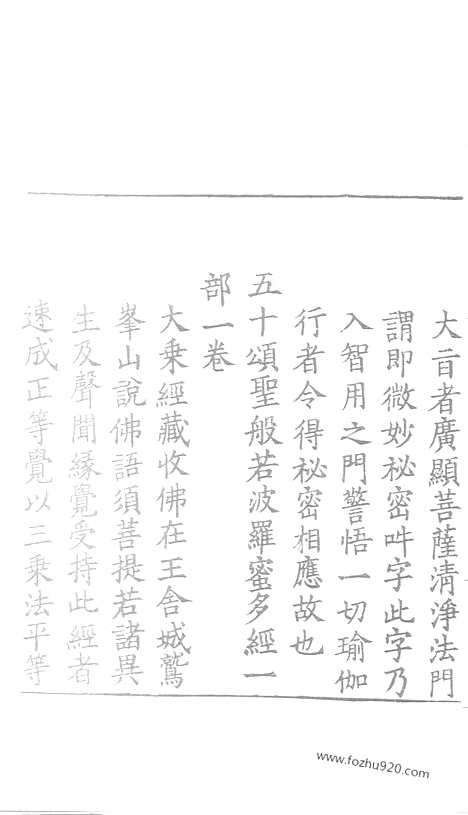 大旨者廣顯菩薩清淨法門
謂即微妙秘密吽字此字乃
入智用之門警悟一切瑜伽
行者令得祕密相應故也
五十頌聖般若波羅蜜多經一
部一卷
大乘經藏收佛在王舍城鷲
峯山說佛語須菩提若諸異
生及聲聞緣覺受持此經者
速成正等覺以三乘法平等
www.fozhu920.com